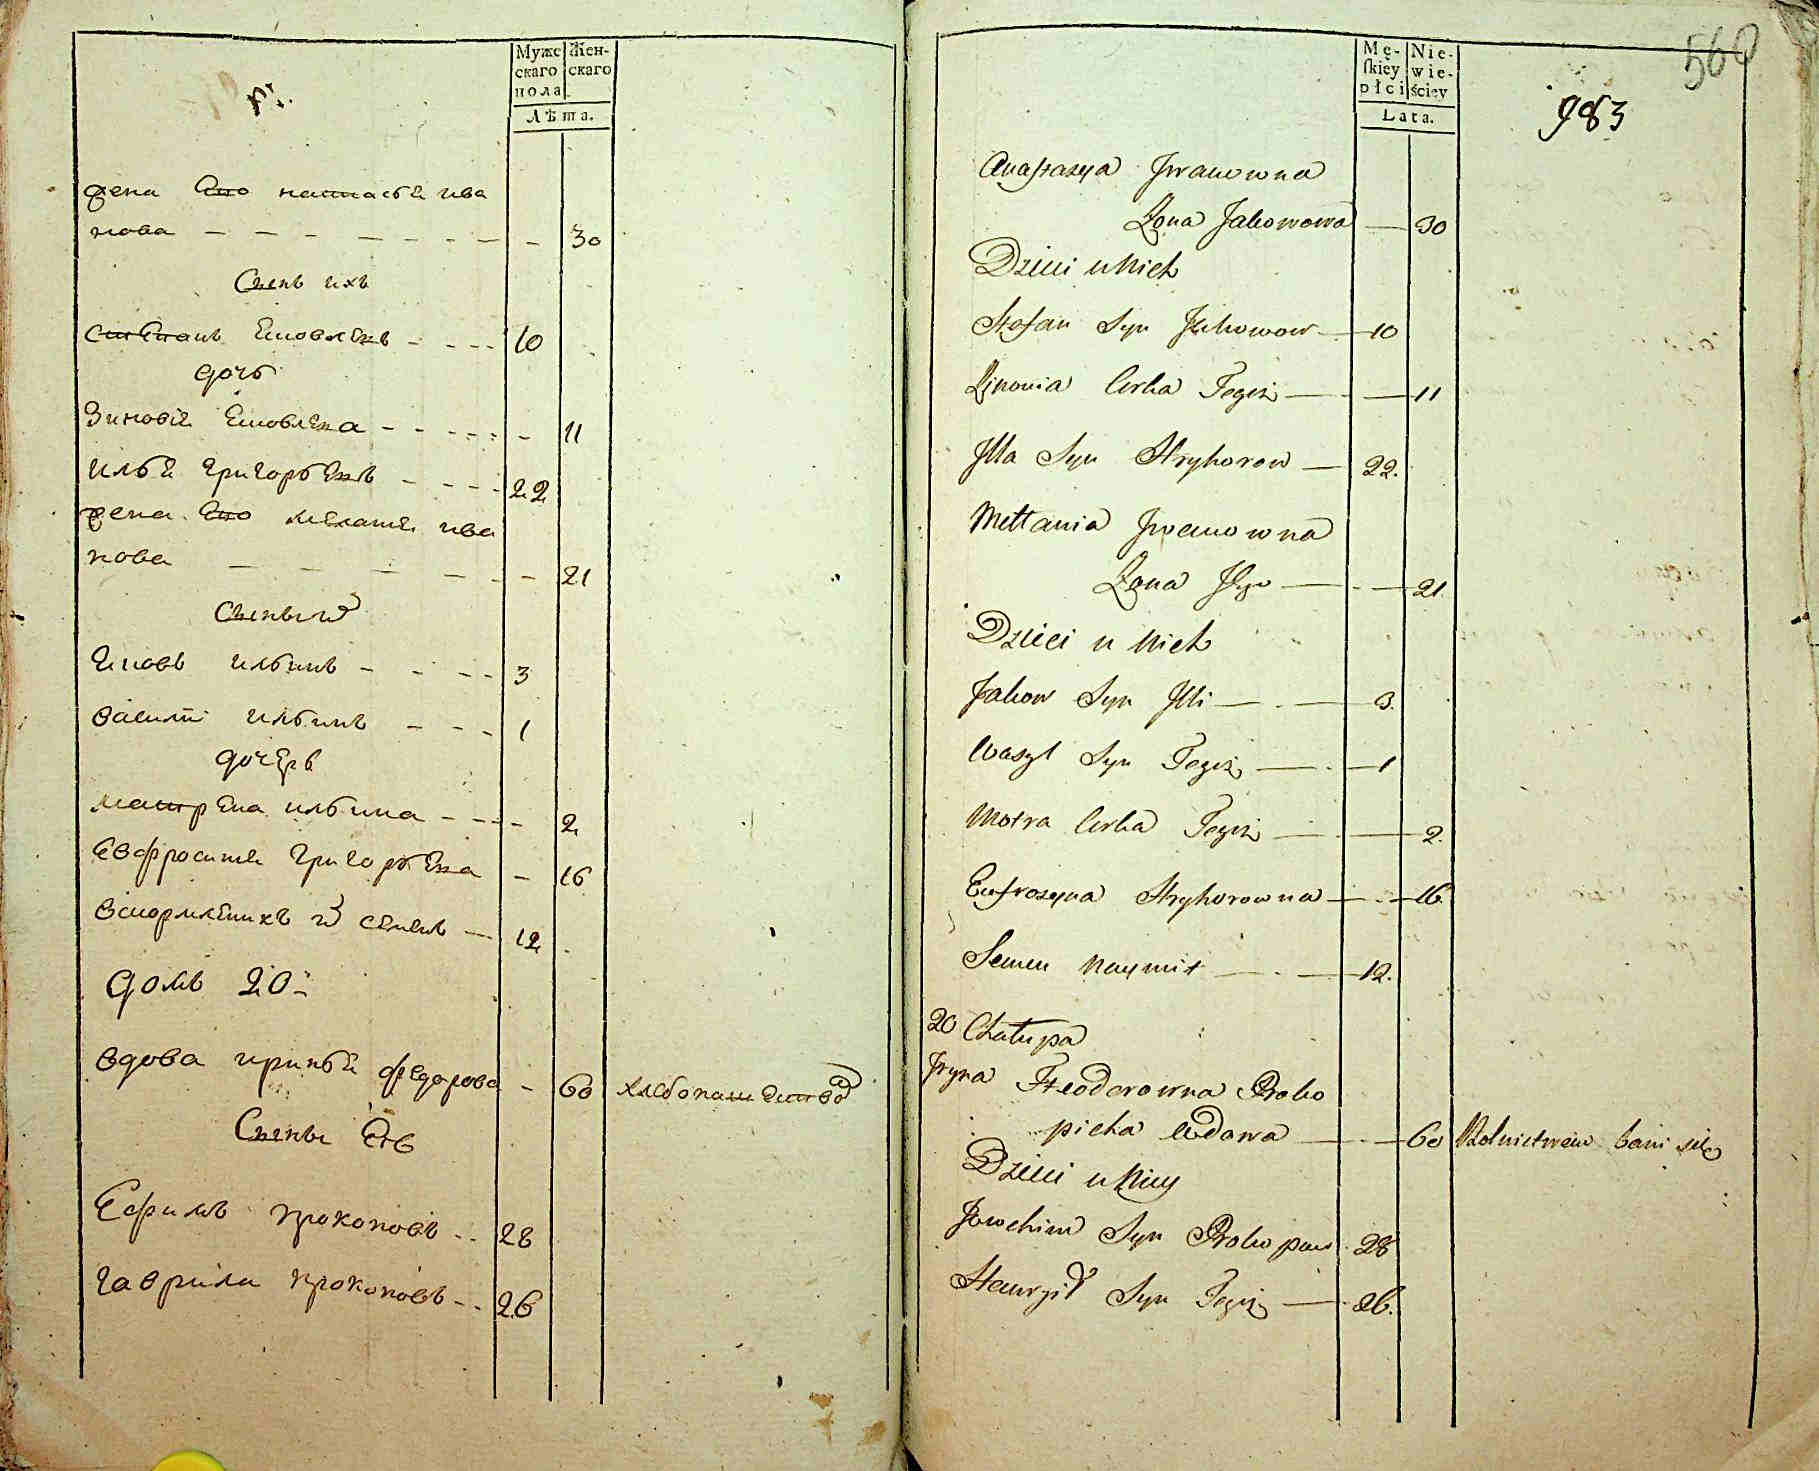 Муже
скаго
пола
Жен-
скаго
Лѣта.
жена Его настасья ива
нова — — — — — — — — 30
Сынъ ихъ
степанъ Яковлевъ - - - - 10
дочь
Зиновія Яковлева - - - - - 11
илья григорьевъ - - - - 22
жена Его меланія ива
нова — — — — — — 21
Сыны их
Яковъ ильинъ - - - - 3
василій ильинъ - - - 1
дочерь
матрена ильина - - - - 2
Евфросинія григорьева - 16
вскормленикъ их семенъ — 12
домъ 20-
вдова иринья федорова - 60 хлебопашеством
Сыны Ея
Ефимъ прокоповъ - - 28
гаврила прокоповъ - - 26
Mę-
skiey
płci
Nie-
wie-
ściey
Lata.
560
983
Anastazya Jwanowna
Żona Jakowowa — 30
Dzieci u Nich
Stefan Syn Jakowow — 10
Zinowia Corka Tegoż — - — 11
Jlla Syn Hryhorow — 22.
Mellania Jwanowna
Żona Jlii — - — 21
Dzieci u Nich
Jakow Syn Jlli — - — 3.
Wasyl Syn Tegoż — - — 1
Motra Corka Tegoż — - — 2.
Eufrozyna Hryhorowna — - — 16
Semen Naymit — - — 12.
20 Chałupa
Jryna Fteodorowna Proko
picha Wdowa — - — 60 Rolnictwem bawi się
Dzieci u Niey
Jowchim Syn Prokopow 28
Hawryił Syn Tegoż — 26.